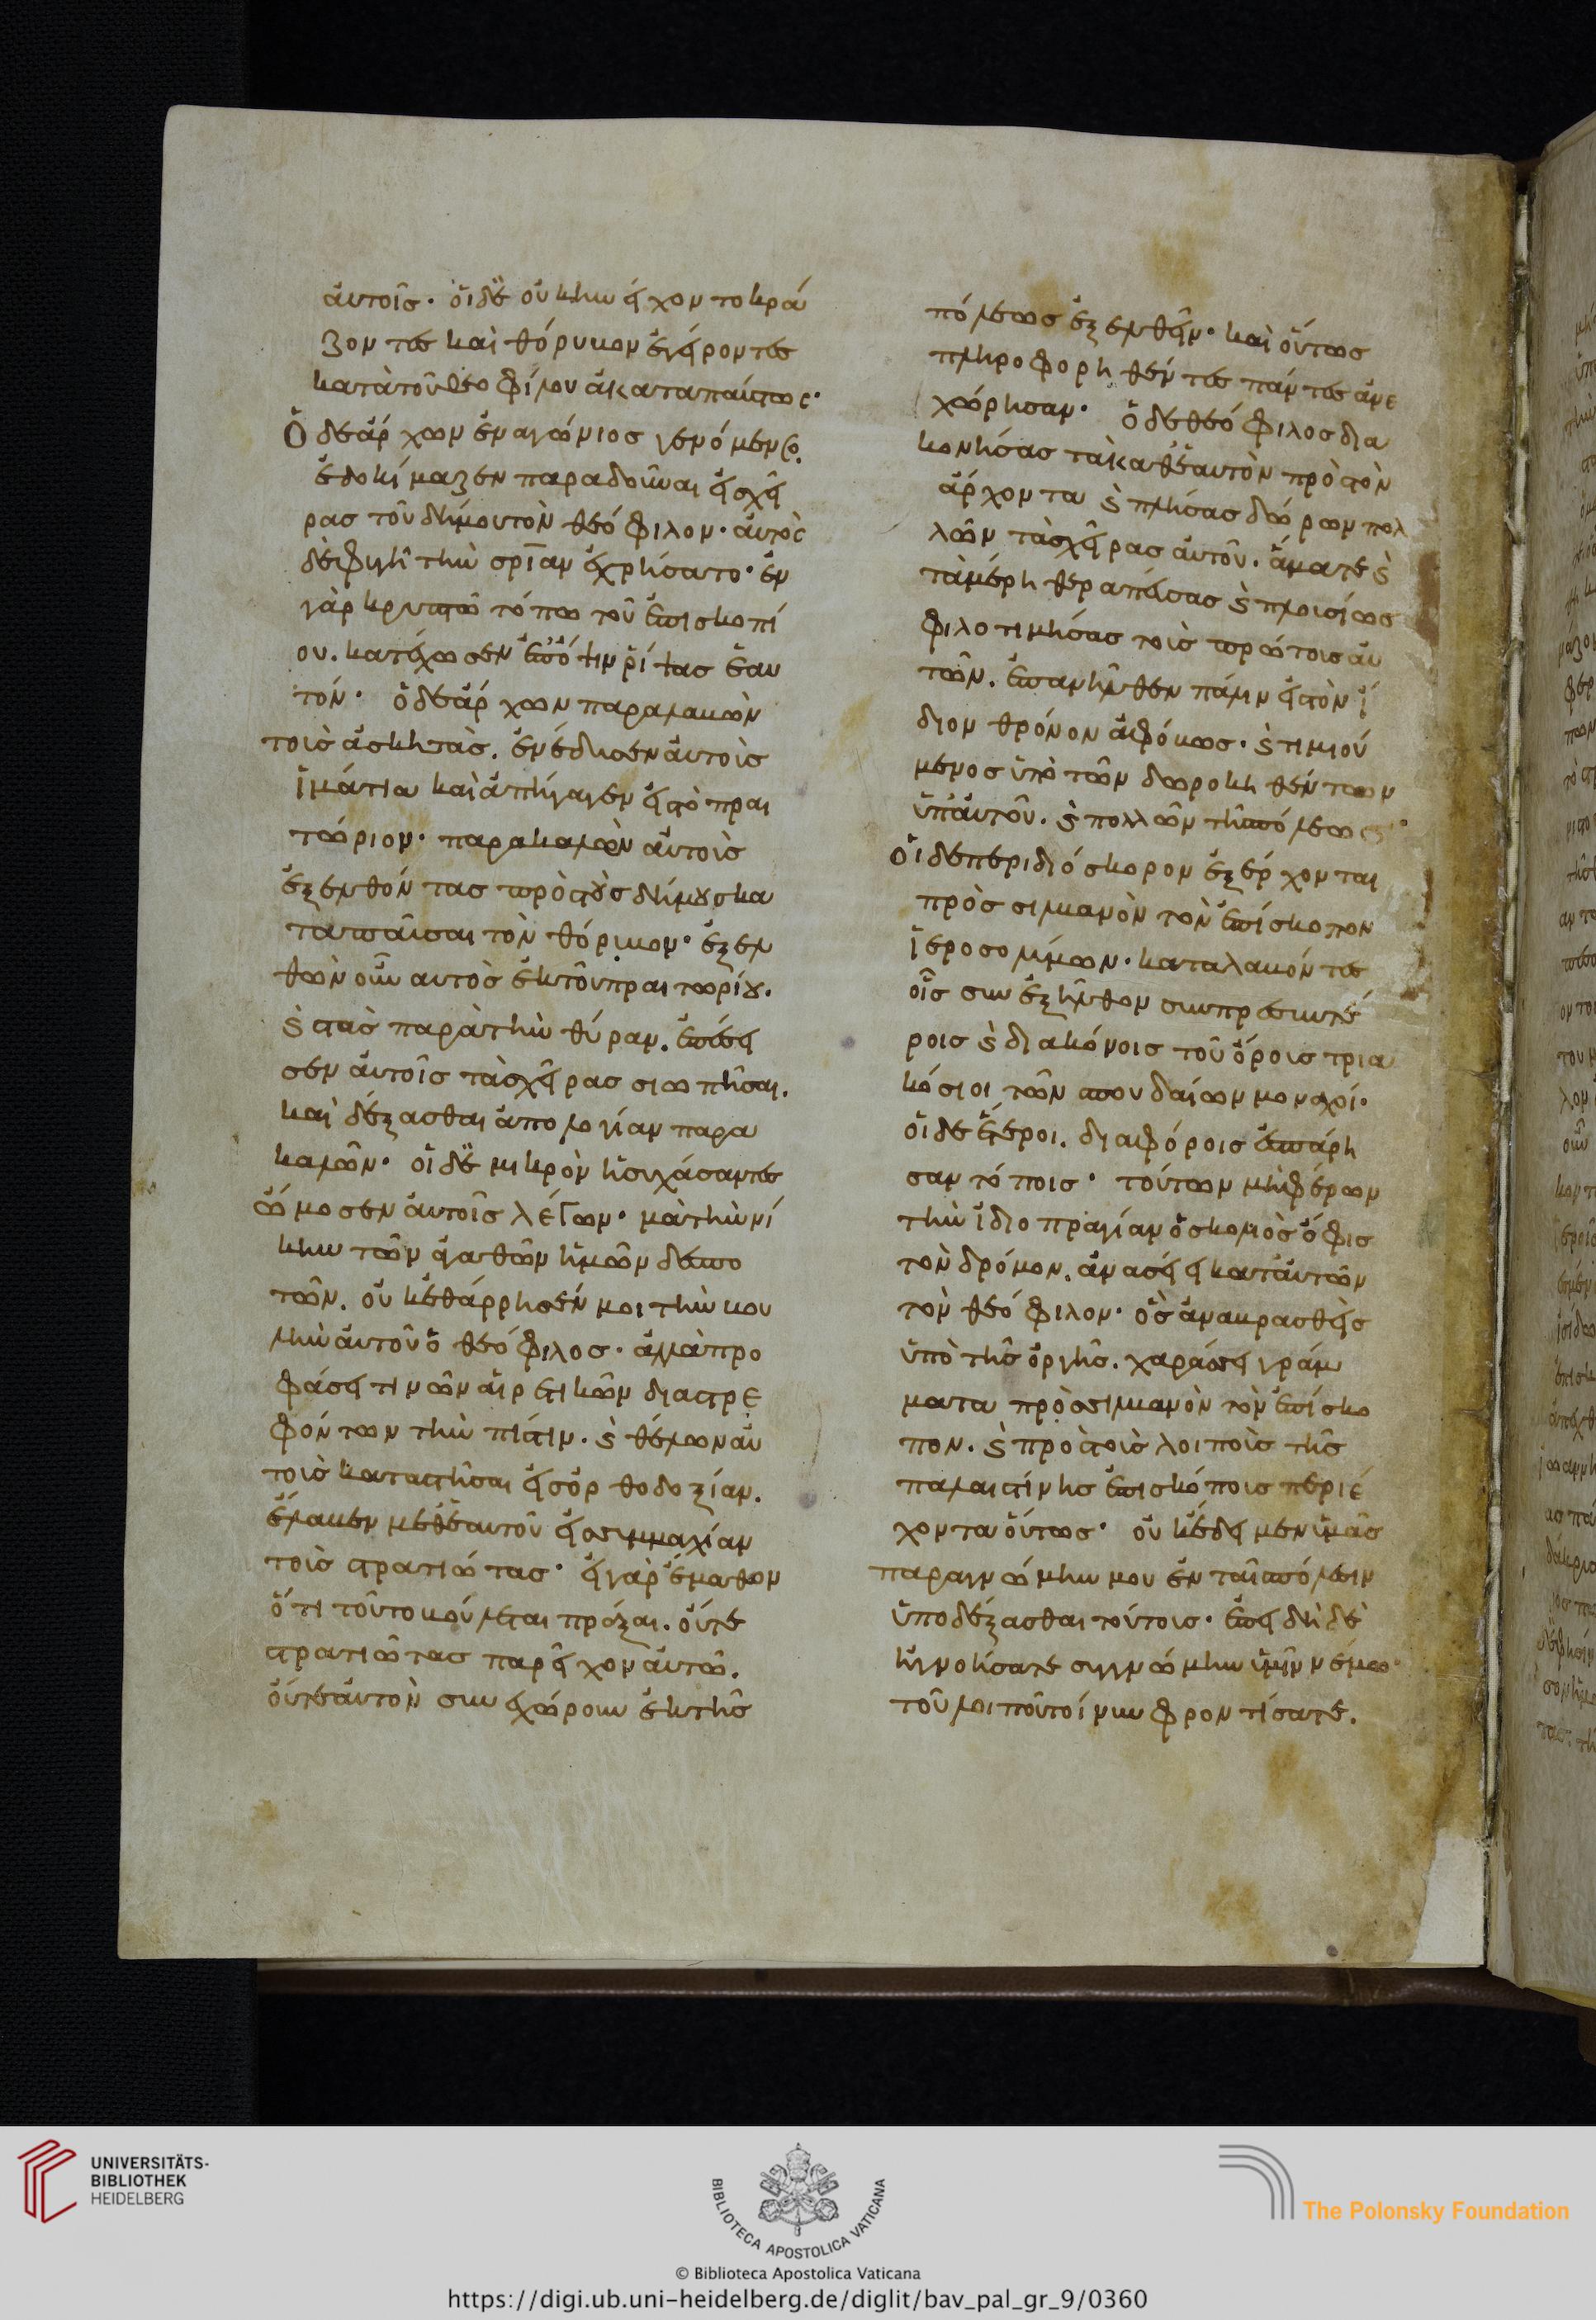 ἀυτοῖσ· ὁι δὲ οὐκ ἠνείχοντο κρά
ζοντες καὶ θόρυβον ἐγείροντες
κατὰ τοῦ θεοφίλου ἀκαταπαύστως·
Ὁ δὲ ἄρχων ἐναγώνιος γενόμενος.
ἐδοκίμαζεν παραδοῦναι εἰς χεῖ
ρας τοῦ δήμου τὸν θεόφιλον. ἀυτὸς
δὲ φυγῆ τὴν σρίαν ἐχρήσατο· ἐν
γὰρ κρυπτῶ τόπω τοῦ ἐπισκοπί
ου. κατέχωσεν ἑαυ
τόν· ὁ δὲ ἄρχων παραλαβὼν
τοὺς ἀσκητὰς. ἐνέδυσεν ἀυτοὺς
ἱμάτια καὶ ἀπήγαγεν εἰς τὸ πραι
τώριον· παρακαλῶν ἀυτοὺς
ἐξελθόντας πρὸς τοὺς δήμους κα
ταπαῦσαι τὸν θόρυβον· ἐξελ
θὼν οὖν αυτὸς ἐκ τοῦ πραιτωρίου.
καὶ στὰς παρὰ τὴν θύραν. ἐπέσει
σεν ἀυτοῖς τὰς χεῖρας σιωπῆσαι.
καὶ δέξασθαι ἀπολογίαν παρα
καλῶν· οἱ δὲ μικρὸν ἡσυχάσαντες
ὤμοσεν ἀυτοῖς λέγων· μὰ τὴν νί
κην τῶν ἀγαθῶν ἡμῶν δεσπο
τῶν. οὐκ ἐθάρρησέν μοι τὴν βου
λὴν ἀυτοῦ ὁ θεόφιλος· ἀλλὰ προ
φάσει τινῶν ἁιρετικῶν διαστρε
φόντων τὴν πίστιν. καὶ θέλων ἀυ
τοὺς καταστῆσαι εἰς ὀρθοδοξίαν.
ἔλαβεν μεθ ἑαυτοῦ εἰς συμμαχίαν
τοὺς στρατιώτας· εἰ γὰρ ἔμαθον
ὅτι τοῦτο βούλεται πράξαι. οὔτε
στρατιώτας παρεῖχον ἀυτῶ.
οὔτε ἀυτὸν συνεχώρουν ἐκ τῆς
πόλεως ἐξελθεῖν· καὶ οὕτως
πληροφορηθέντες πάντες ἀνε
χώρησαν· ὁ δὲ θεόφιλος δια
κονήσας τὰ καθ ἑαυτὸν πρὸς τὸν
ἄρχοντα καὶ πλήσας δώρων πολ
λῶν τὰς χεῖρας ἀυτοῦ. ἅμα τε καὶ
τὰ μέρη θεραπεύσας καὶ πλουσίως
φιλοτιμήσας τοὺς πρώτους ἀυ
τῶν. ἐπανῆλθεν πάλιν εἰς τὸν ἴ
διον θρόνον ἀφόβως· καὶ τιμιού
μενος ὑπὸ τῶν δωροκηθέντων
ὑπ ἀυτοῦ. καὶ πολλῶν τῆς πόλεως·
Οἱ δὲ περὶ διόσκορον ἐξέρχονται
πρὸς σιλβανὸν τὸν ἐπίσκοπον
ἱεροσολύμων· καταλαβόντες
οἷς συνεξῆλθον συν πρεσβυτέ
ροις καὶ διακόνοις τοῦ ὄρους τρια
κόσιοι τῶν σπουδαίων μοναχοί·
οἱ δὲ ἕτεροι. διαφόροις ἐσπάρη
σαν τόποις· τούτων μὴ φέρων
τὴν ἰδιοπραγίαν ὁ σκολιὸς ὄφις
τὸν δρόμον. ἀνασείει κατ ἀυτῶν
τὸν θεόφιλον· ὃς ἀναβρασθεὶς
ὑπὸ τῆς ὀργῆς. χαράσσει γράμ
ματα πρὸς σιλβανὸν τὸν ἐπίσκο
πον. καὶ πρὸς τοὺς λοιποὺς τῆς
παλαιστίνης ἐπισκόπους περιέ
χοντα οὕτως· οὐκ ἔδει μεν ὑμᾶς
παρα γνώμην μου ἐν ταῖς πόλεσιν
ὑποδέξασθαι τούτους· ἐπει δὴ δὲ
ἠγνοήσατε συγγνώμην ὑμῖν νέμω·
τοῦ λοιποῦ τοίνυν φροντίσατε.
UNIVERSITÄTS-
BIBLIOTHEK
HEIDELBERG
BIBLIOTECA APOSTOLICA VATICANA
The Polonsky Foundation
© Biblioteca Apostolica Vaticana
https://digi.ub.uni-heidelberg.de/diglit/bav_pal_gr_9/0360